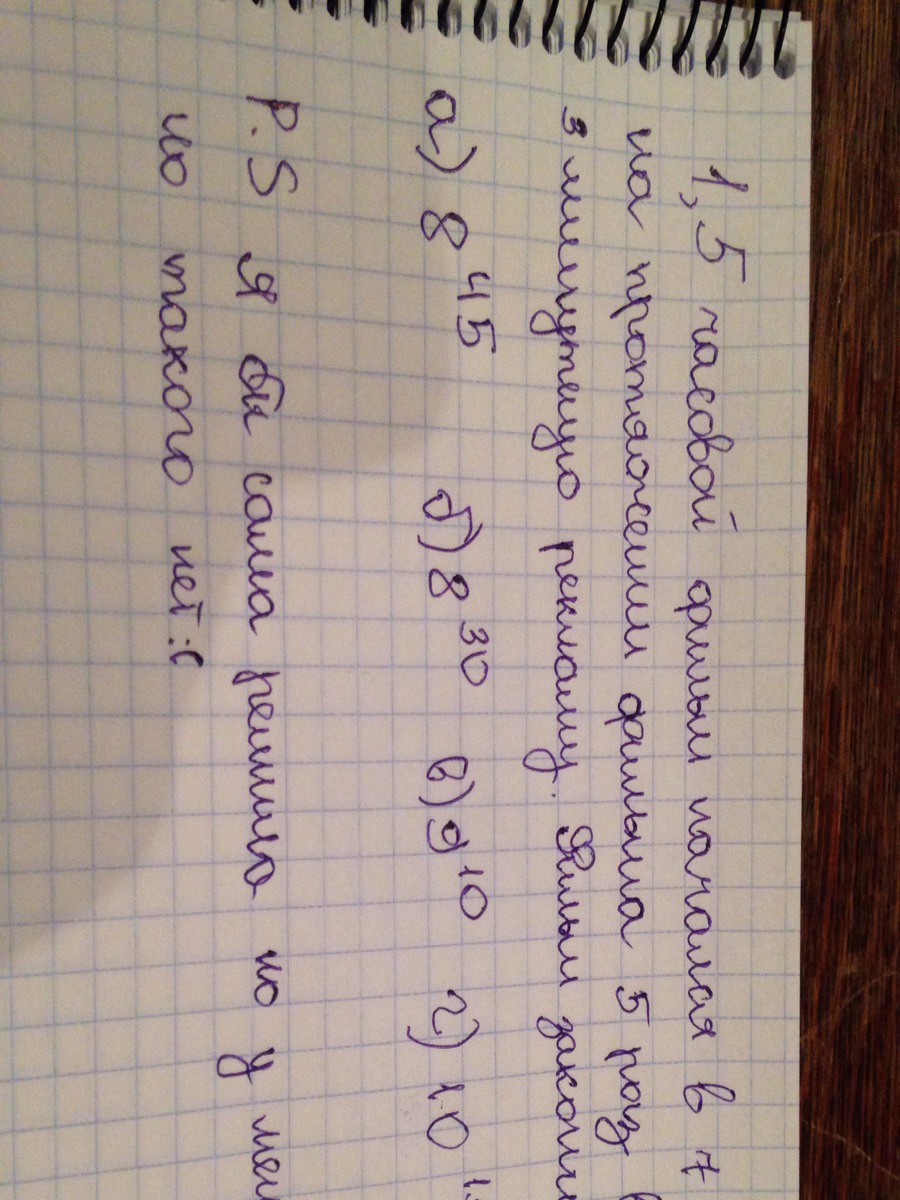 1,5 часовой фильм начался в 7
на протяжении фильма 5 раз
3 минутную рекламу. Фильм
а) 8 45 б) 8 30 в) 9 10 г) 10
P.S я бы сама решила но у
но такого нет :(